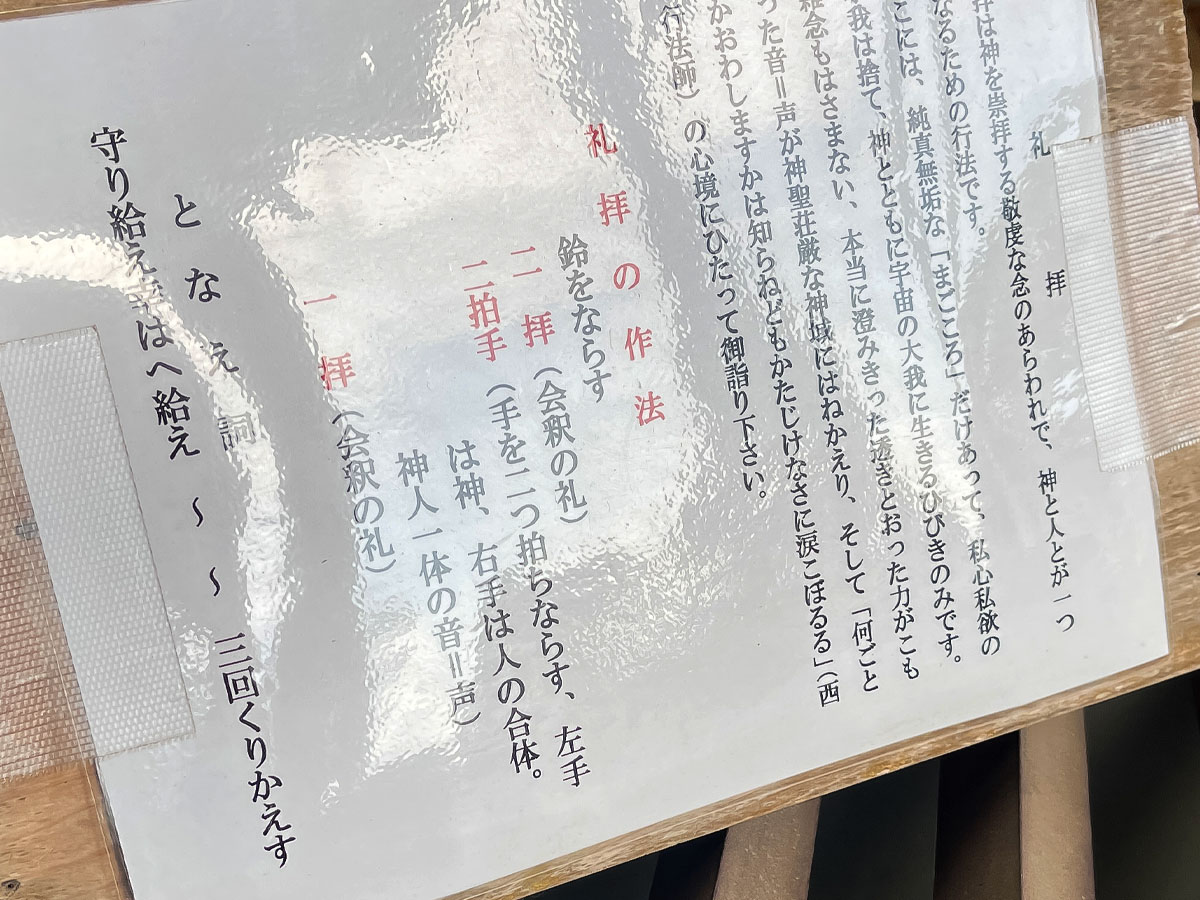 礼拝
拝は神を崇拝する敬虔な念のあらわれで、神と人とが一つ
なるための行法です。
こには、純真無垢な「まごころ」だけあって、私心私欲の
我は捨て、神とともに宇宙の大我に生きるひびきのみです。
雑念もはさまない、本当に澄みきった透きとおった力がこも
った音＝声が神聖荘厳な神域にはねかえり、そして「何ごと
かおわしますかは知らねどもかたじけなさに涙こぼるる」（西
行法師）の心境にひたって御詣り下さい。
礼拝の作法
鈴をならす
二拝（会釈の礼）
二拍手（手を二つ拍ちならす、左手
は神、右手は人の合体。
神人一体の音＝声）
一拝（会釈の礼）
となえ詞
守り給え幸はへ給え〜〜三回くりかえす